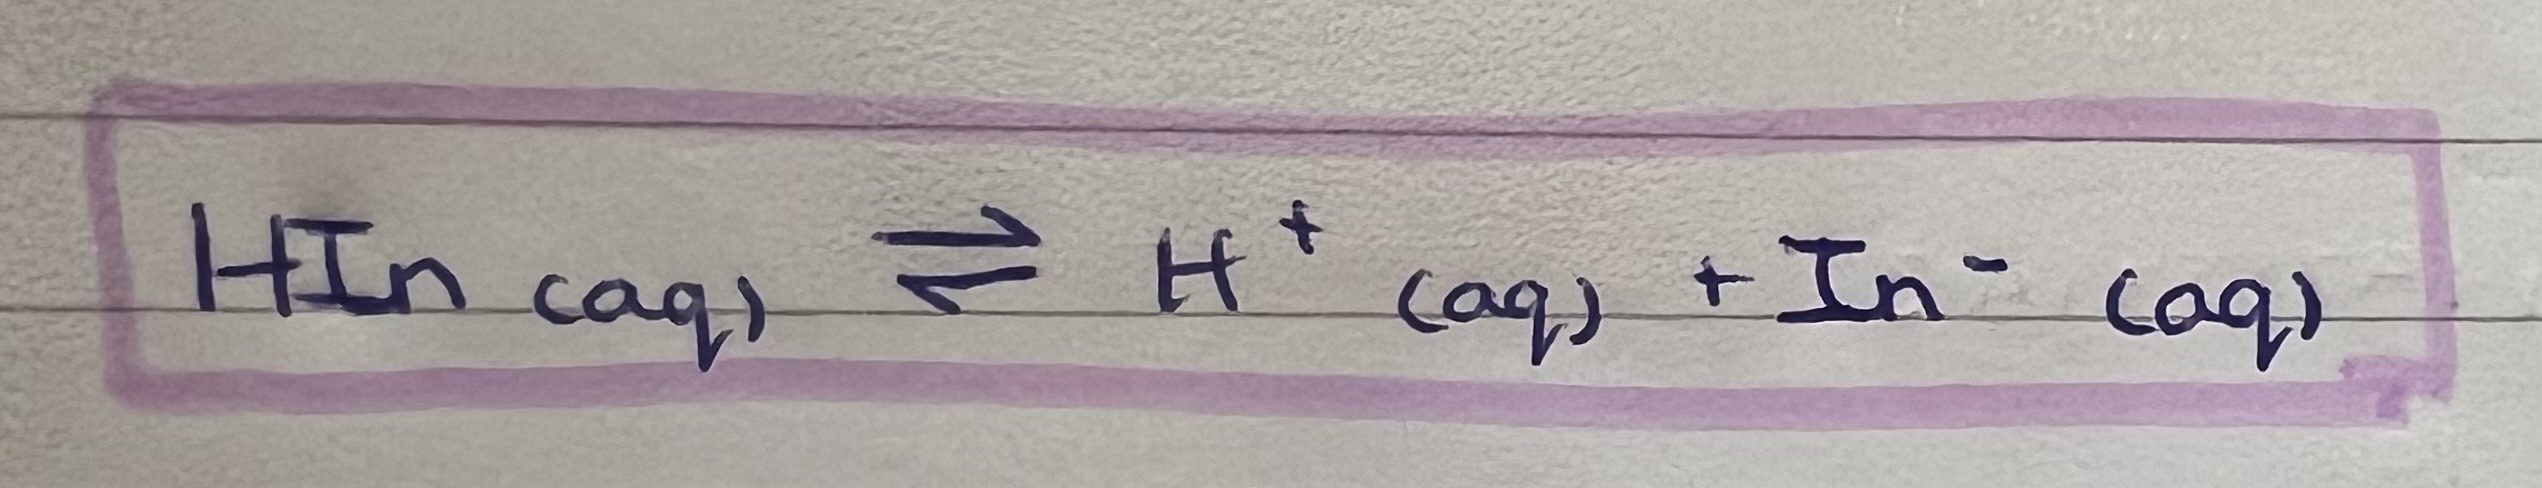 HIn (aq) ⇌ H⁺ (aq) + In⁻ (aq)